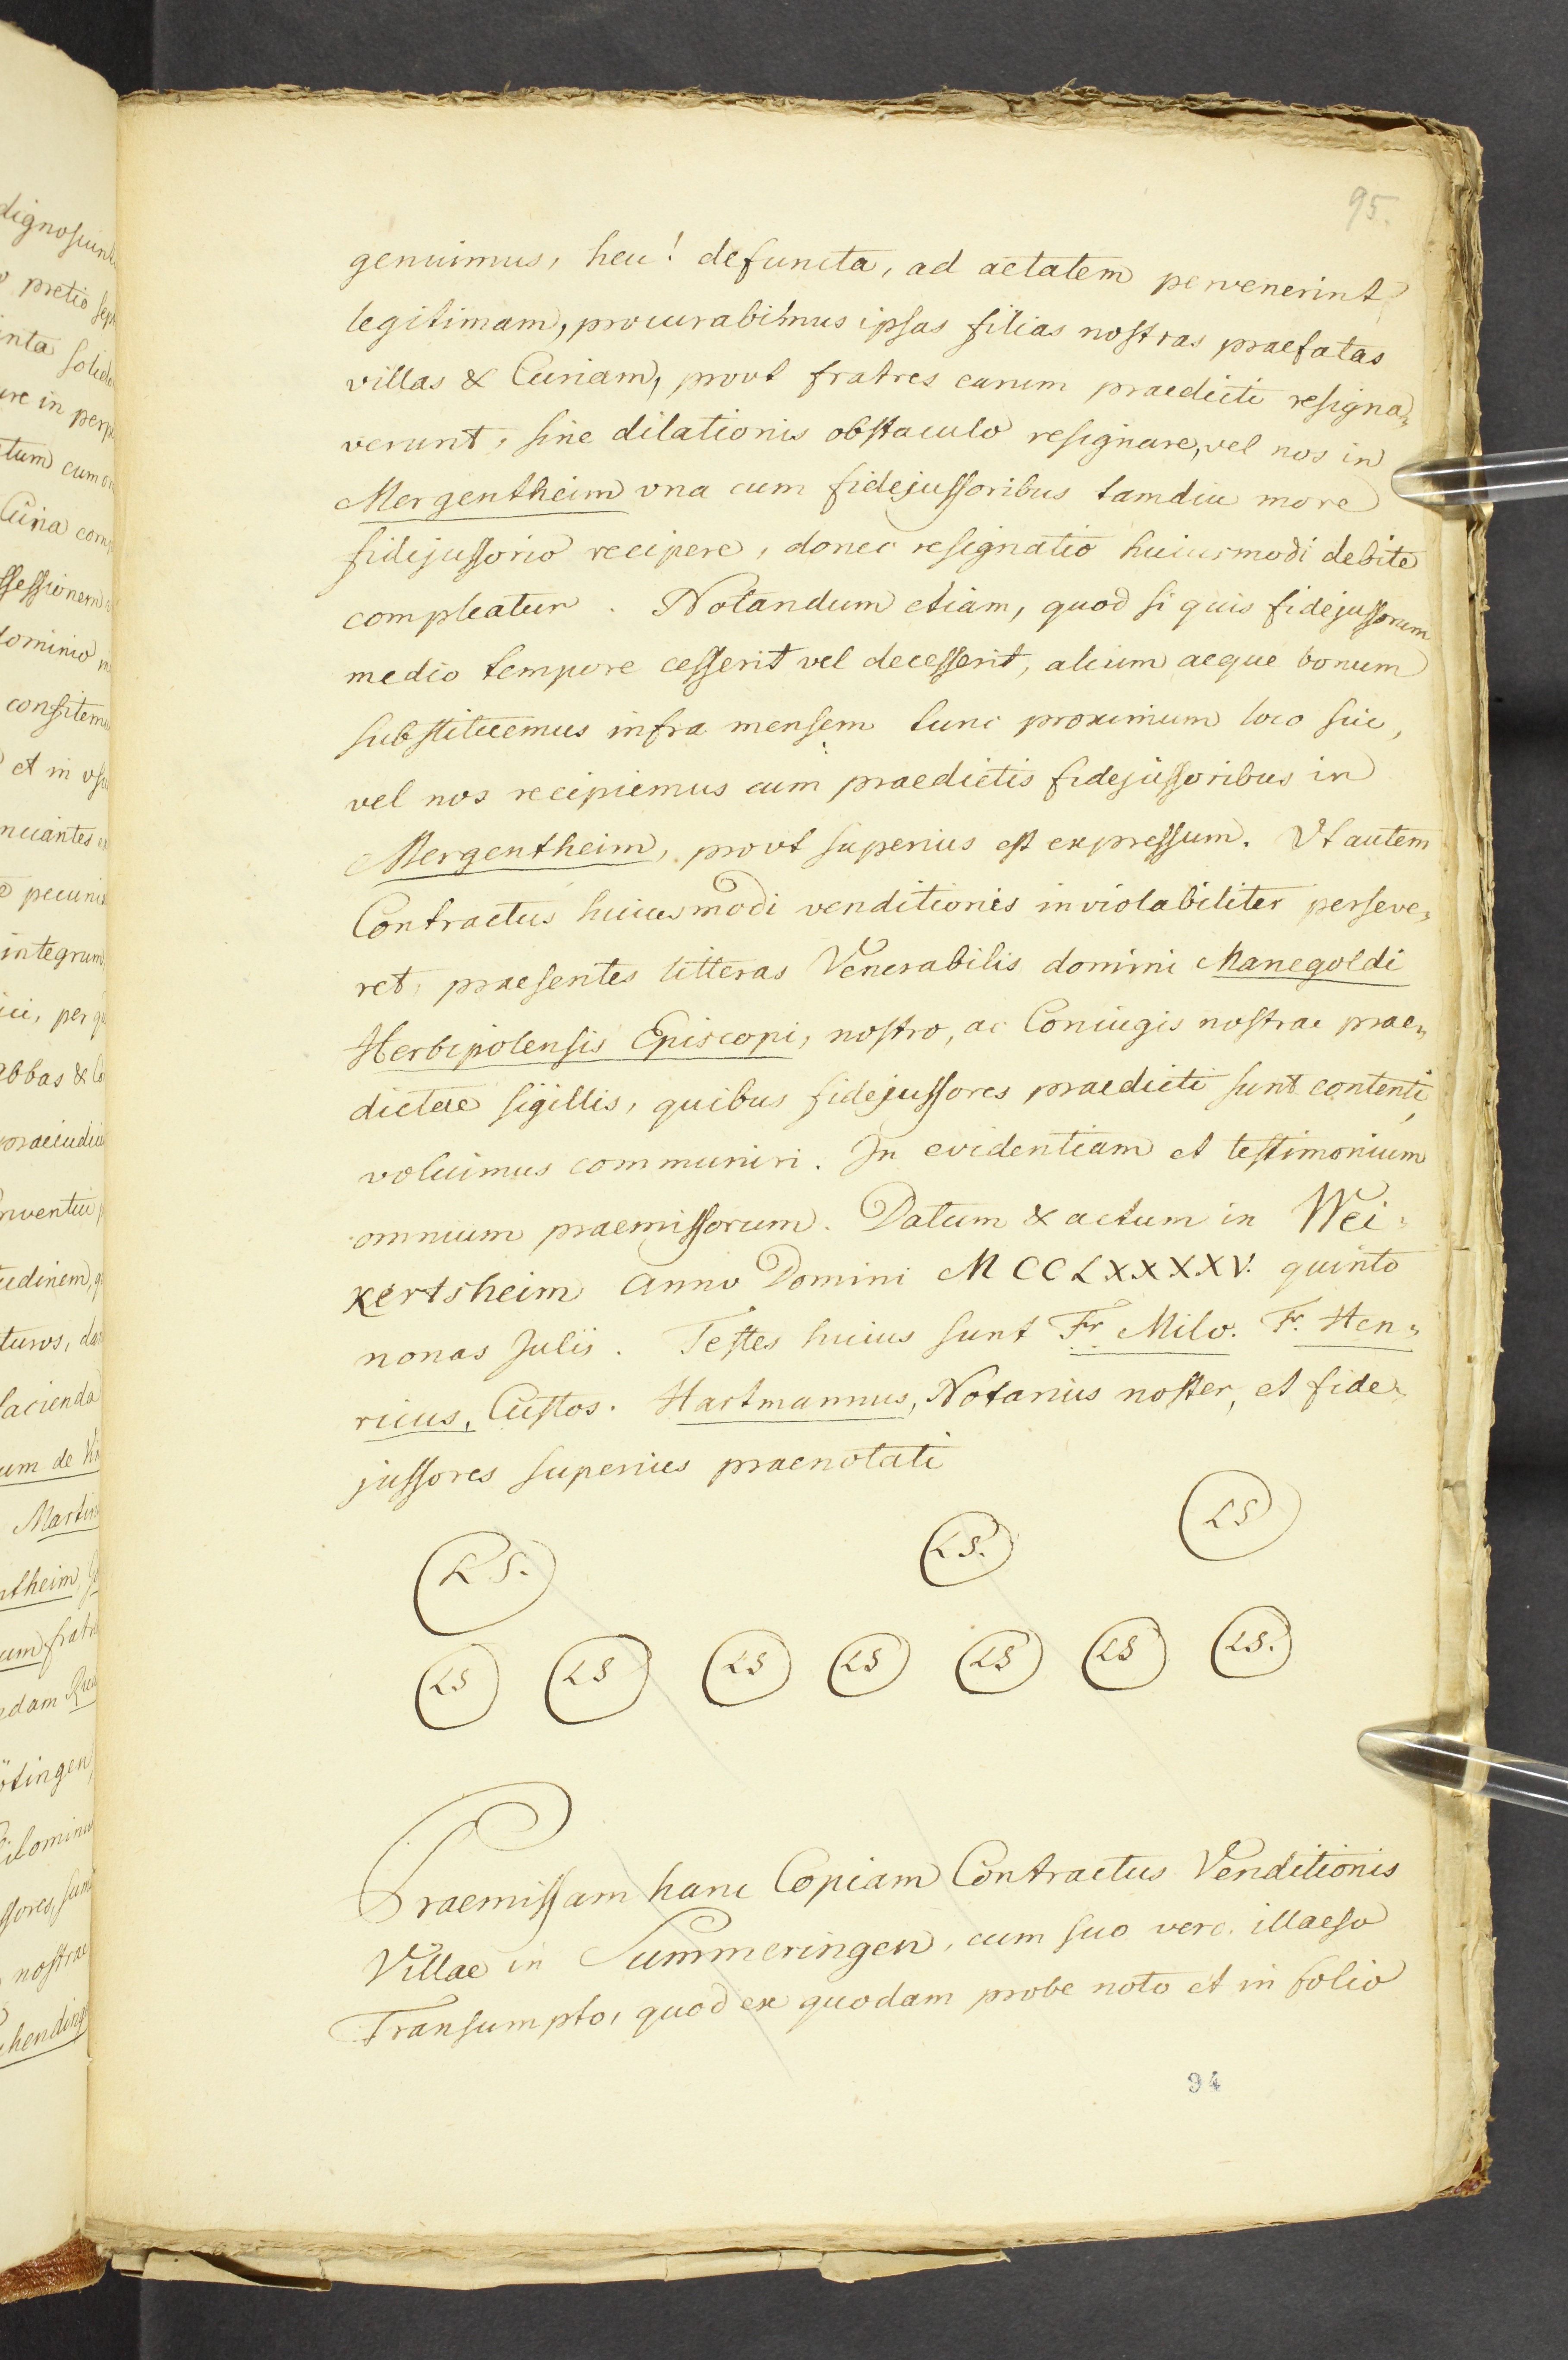 95.
genuimus, heu! defuncta, ad aetatem pervenerint
legitimam, procurabimus ipsas filias nostras praefatas
villas & Curiam, prout fratres earum praedicti resigna„
verunt, sine dilationis obstaculo resignare, vel nos in
Mergentheim vna cum fidejussoribus tamdiu more
fidejussorio recipere, donec resignatio huiusmodi debite
compleatur. Notandum etiam, quod si quis fidejussorum
medio tempore cesserit vel decesserit, alium aeque bonum
substituemus infra mensem tunc proximum loco sui,
vel nos recipiemus cum praedictis fidejussoribus in
Mergentheim, prout superius est expressum. Vt autem
Contractus huiusmodi venditionis inviolabiliter perseve„
ret, praesentes litteras Venerabilis domini Manegoldi
Herbipolensis Episcopi, nostro, ac Coniugis nostrae prae„
dictae sigillis, quibus fidejussores praedicti sunt contenti,
voluimus communiri. In evidentiam et testimonium
omnium praemissorum. Datum & actum in Wei„
kertsheim Anno Domini MCCLXXXXV. quinto
nonas Julii. Testes huius sunt Fr. Milo. Fr. Hen„
ricus, Custos. Hartmannus, Notarius noster, et fide„
jussores superius praenotati
LS. LS. LS
LS LS LS LS LS LS LS.
Praemissam hanc Copiam Contractus Venditionis
Villae in Summeringen, cum suo vero illaeso
Transumpto, quod ex quodam probe noto et in folio
94
dignosiunt
pretio sep
inta solid
ure in perp
tum cum om
Curia com
ssessionem
dominio
confitemu
et in vsu
nciantes
pecunia
integrum
ici, per q
abbas & Co
praeiudic
nventui
tudinem, q
turos, da
facienda
um de
Martin
ntheim,
um fratr
edam
ötingen
issores, sunt
nostrae
hending